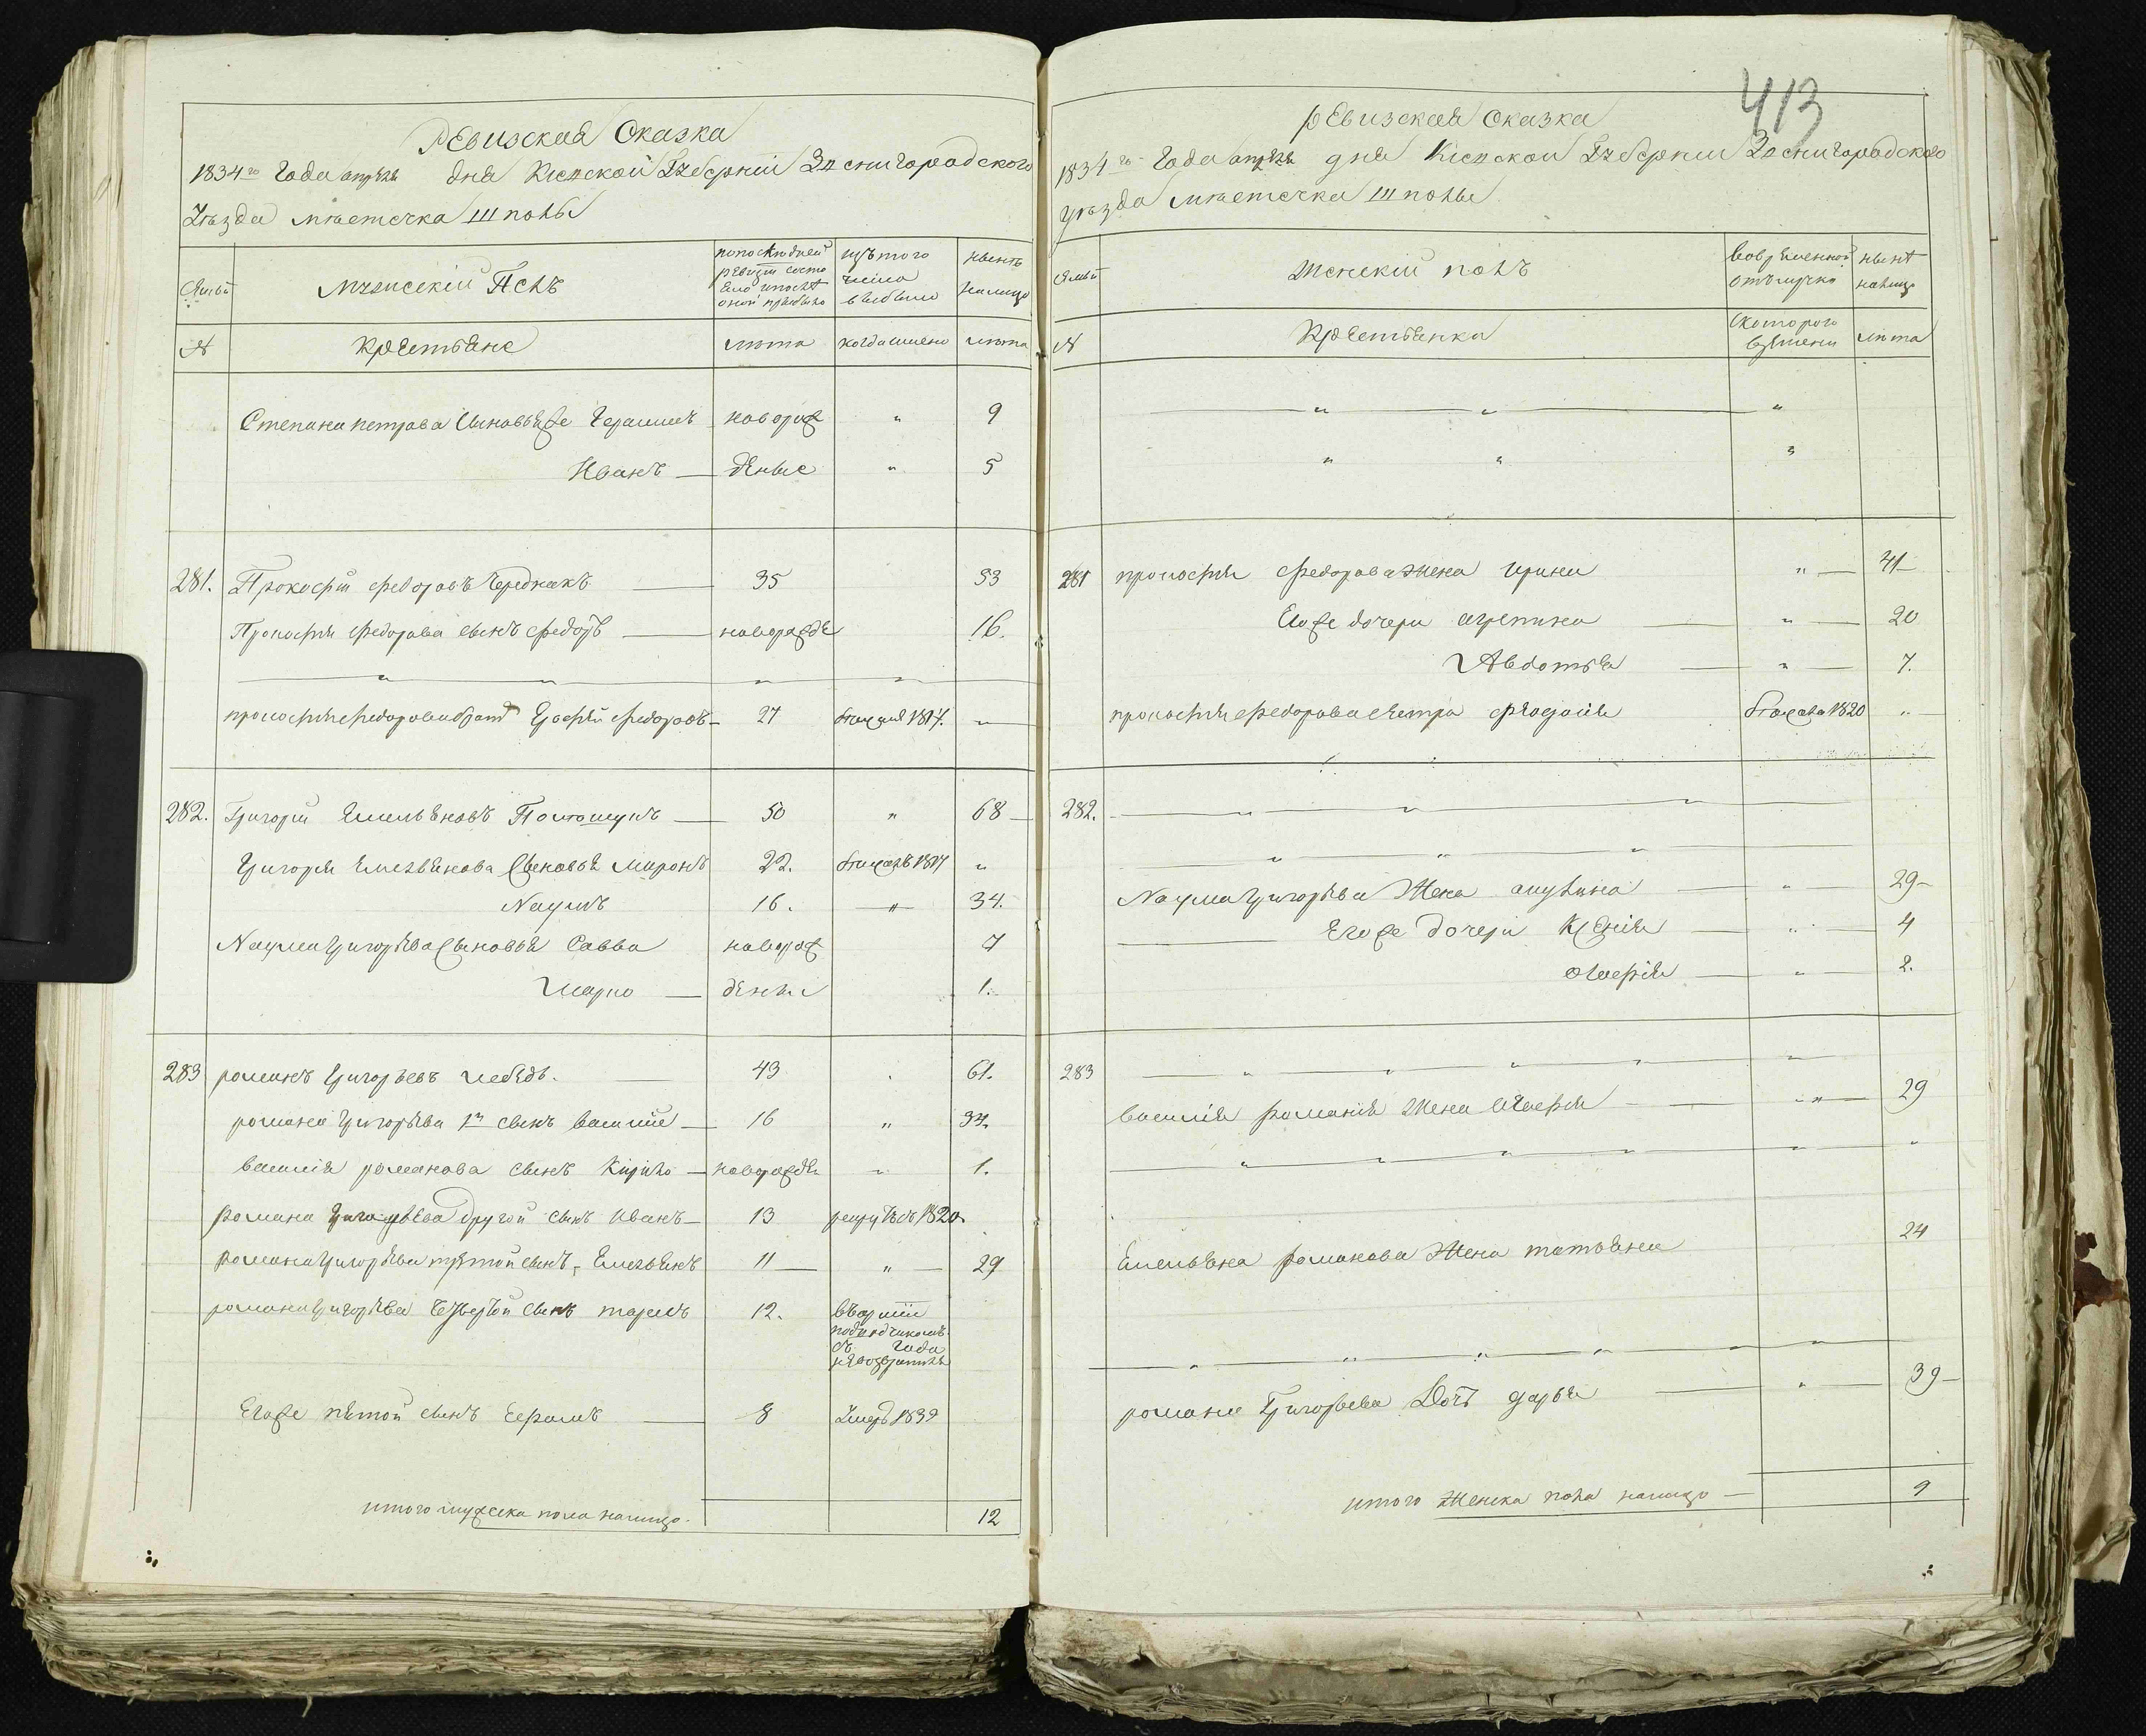 Ревизская Сказка
1834го Года апреля дня Киевской Губернии Звенигородского
Уезда местечка Шполы
Семьи
Мужеский Полъ
По последней ревизии состояло и после оной прибыло
Изъ того числа выбыло
Ныне на лицо
№
Крестьяне
лета
когда имено
лета
Степана петрова сыновья Герасимъ новорож „ 9
Иванъ — деные „ 5
281. Прокофий федоровъ Чередникъ — 35 53
Прокофия федорова сынъ федоръ — новорожде 16.
прокофия федорова братъ Ерофей федоровъ — 27 1817. „
282. Григорий Емельяновъ — 50 „ 68
Григория Емельянова Сыновья Миронъ 22. 1817 „
Наумъ 16. „ 34.
Наума григорьева Сыновья Савва новорож 7
Марко — дены 1.
283 романъ григорьевъ лебедь. 43 . 61.
романа григорьева 1й сынъ василий — 16 „ 34
василия романова сынъ Кирило — новорожде „ 1.
романа григорьева другой сынъ иванъ — 13 рекрутъ въ 1820
романа григорьева третой сынъ, Емельянъ 11 — „ — 29
романа григорьева четвертой сынъ тарасъ 12. въ армии
погонщикомъ
съ года
невозвратился
Егоже пятой сынъ — 8 Умеръ 1832
итого мужеска пола налицо. 12
413
ревизская Сказка
1834го Года апреля дня Киевской Губернии Звенигородского
уезда местечка Шполы
Семьи
Женский полъ
Во временной отлучке
ныне налицо
№
Крестьянка
С которого времени
лета
281 прокофия федорова жена ирина „ — 41
Егоже дочери агрепина — „ — 20
Авдотья — „ — 7.
прокофия федорова сестра 1820 „
282.
Наума григорьева Жена — „ — 29
Егоже дочери Ксения — „ — 4
— „ — 2.
283
василия романа Жена — „ — 29
Емельяна романова Жена татьяна 24
романа Григорьева Дочь дарья — „ — 39
итого Женска пола налицо — 9